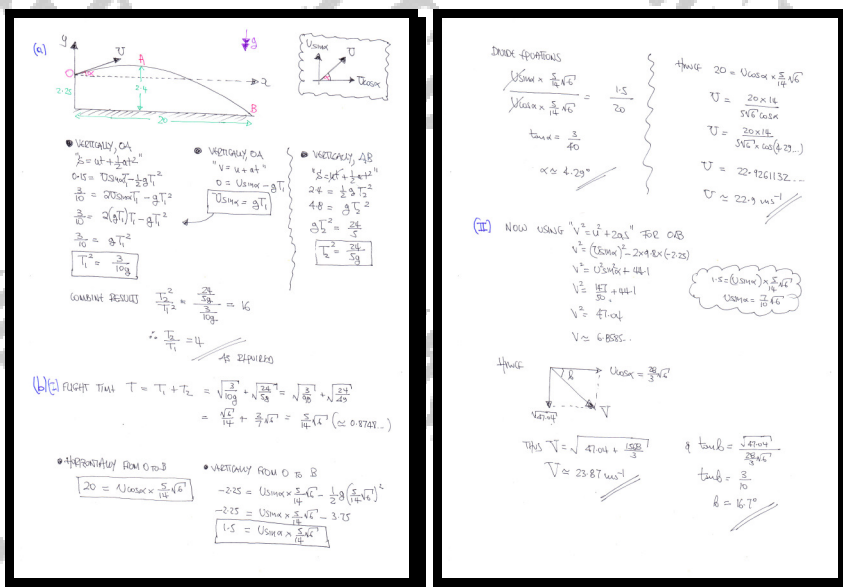 (a)
y
U
A
g
O
α
x
2.25
2.4
B
20
Usinα
U
Ucosα
• VERTICALLY, OA
"s = ut + ½at²"
0.15 = UsinαT₁ - ½gT₁²
3/10 = 2UsinαT₁ - gT₁²
3/10 = 2(gT₁)T₁ - gT₁²
3/10 = gT₁²
T₁² = 3/10g
• VERTICALLY, OA
"v = u + at"
0 = Usinα - gT₁
Usinα = gT₁
• VERTICALLY, AB
"s = ut + ½at²"
2.4 = ½gT₂²
4.8 = gT₂²
gT₂² = 24/5
T₂² = 24/5g
COMBINE RESULTS T₂²/T₁² = (24/5g)/(3/10g) = 16
∴ T₂/T₁ = 4
AS REQUIRED
(b)(I) FLIGHT TIME T = T₁ + T₂ = √(3/10g) + √(24/5g) = √(3/98) + √(24/49)
= √6/14 + 2/7√6 = 5/14√6 (≃ 0.8748...)
• HORIZONTALLY FROM O TO B
20 = Ucosα × 5/14√6
• VERTICALLY FROM O TO B
-2.25 = Usinα × 5/14√6 - ½g(5/14√6)²
-2.25 = Usinα × 5/14√6 - 3.75
1.5 = Usinα × 5/14√6
DIVIDE EQUATIONS
(Usinα × 5/14√6)/(Ucosα × 5/14√6) = 1.5/20
tanα = 3/40
α ≃ 4.29°
HENCE 20 = Ucosα × 5/14√6
U = (20×14)/(5√6 cosα)
U = (20×14)/(5√6 × cos(4.29...))
U = 22.9261132...
U ≃ 22.9 ms⁻¹
(II) NOW USING "V² = u² + 2as" FOR OAB
V² = (Usinα)² - 2×9.8×(-2.25)
V² = U²sin²α + 44.1
V² = 147/50 + 44.1
V² = 47.04
V ≃ 6.8585...
1.5 = (Usinα) × 5/14√6
Usinα = 7/10√6
HENCE
Ucosα = 28/3√6
√47.04
V
THUS V =
V ≃ 23.87 ms⁻¹
tan
tan = 3/10
= 16.7°